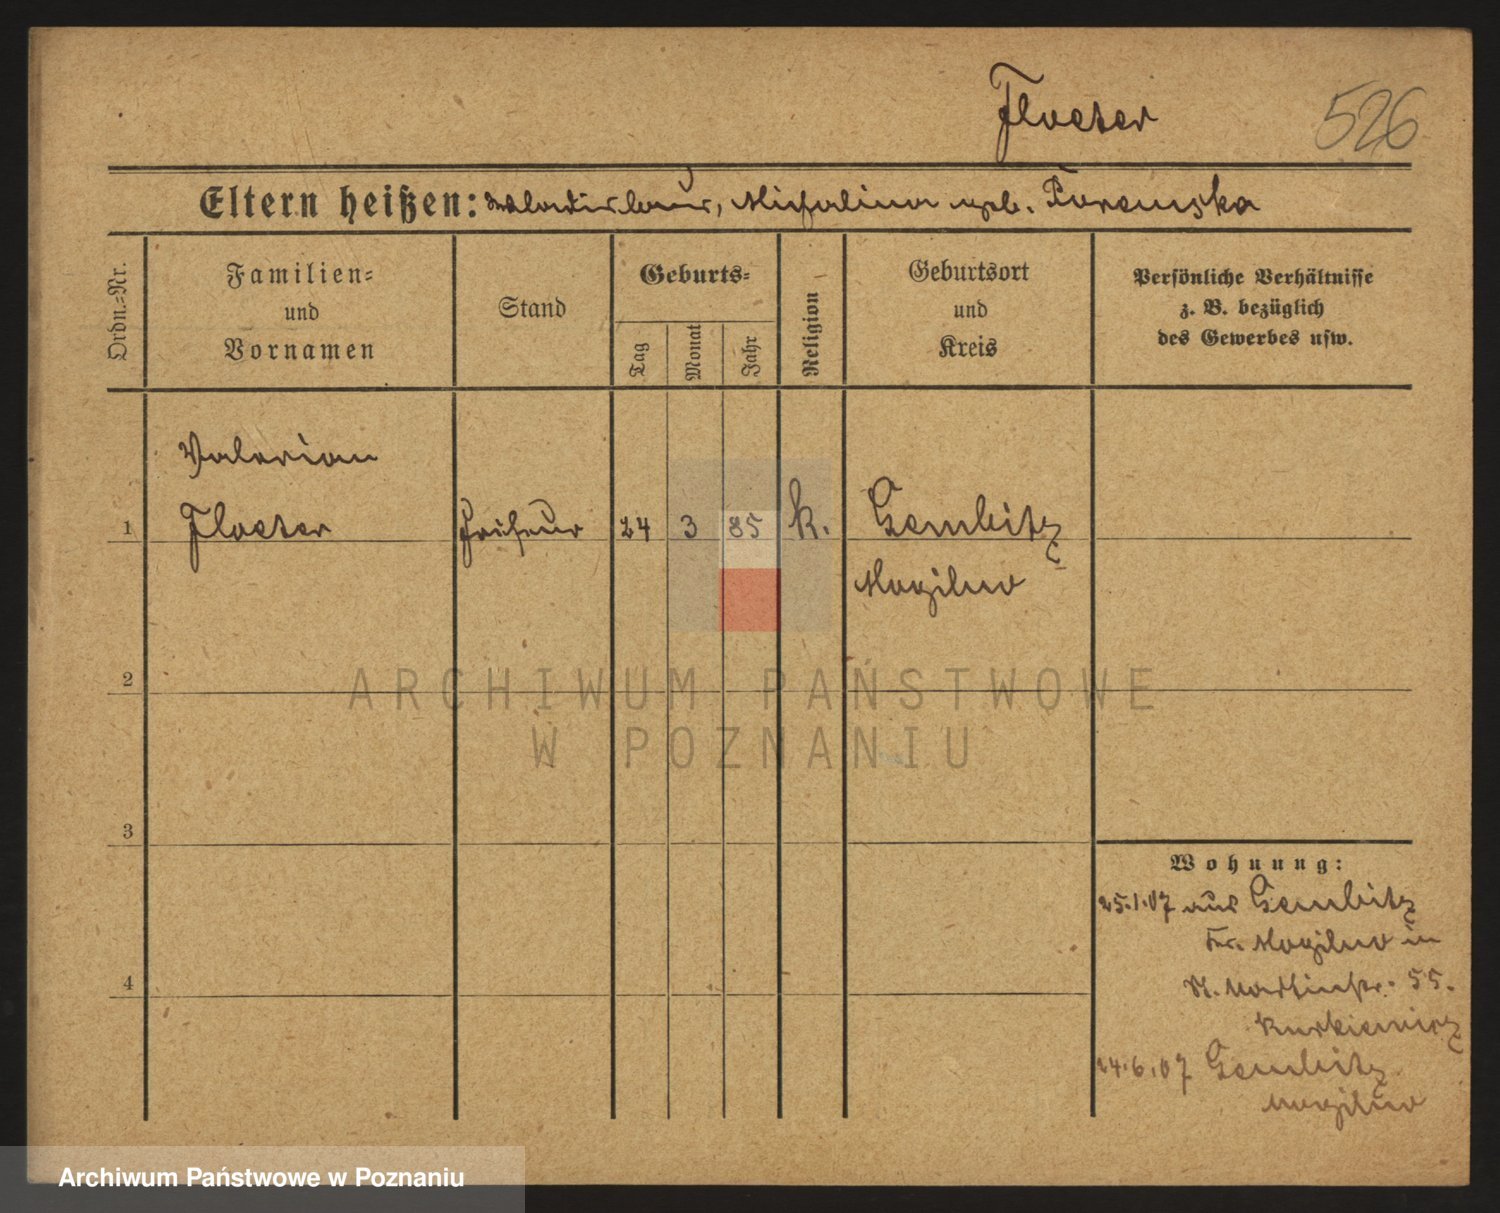 Floeter
526
Eltern heißen: Wladislaus, Michalina geb. Poremska
Ordn.-Nr.
Familien-
und
Vornamen
Stand
Geburts-
Tag
Monat
Jahr
Religion
Geburtsort
und
Kreis
Persönliche Verhältnisse
z. B. bezüglich
des Gewerbes usw.
Valerian
1 Floeter Friseur 24 3 85 k. Gembitz
Mogilno
2
ARCHIWUM PAŃSTWOWE
W POZNANIU
3
Wohnung:
25.1.07 aus Gembitz
Kr. Mogilno in
St. Martinstr. 55.
4
24.6.07 Gembitz
Mogilno
Archiwum Państwowe w Poznaniu